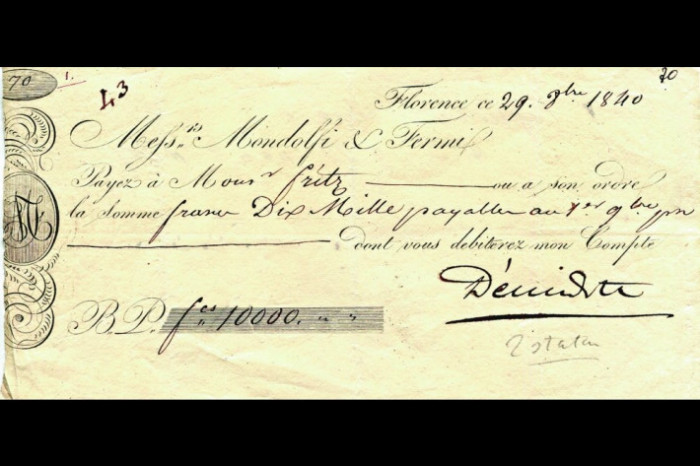 70
1.
43
70
Florence ce 29. 8bre 1840
Mess.rs Mondolfi & Fermi
Payez à Mons.r fritz ou a son ordre
la somme francs Dix Mille payables au 1er 9bre
dont vous debiterez mon Compte
B.P. fcs 10000. " "